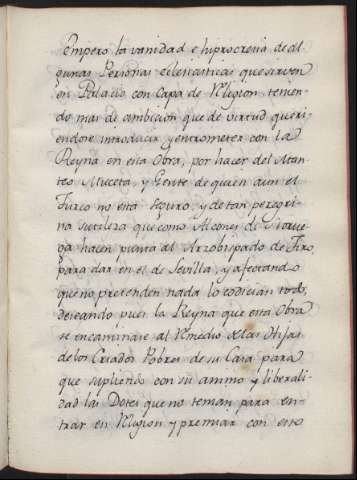 Empero la vanidad e hiprocresia de al
gunas Personas eclesiasticas que sirven
en Palacio con Capa de Religion tenien
do mas de ambicion que de virtud queri
endose introducir y entrometer con la
Reyna en esta Obra, por hacer del Man-
teo Muceta, y Gente de quien aun el
Turco no esta seguro, y de tan peregri
na sutileza que como Alcones de Norue
ga hacen punta al Arzobispado de Tiro
para dar en el de Sevilla, y afectando
que no pretenden nada lo codician todo,
deseando pues la Reyna que esta Obra
se encaminase al Remedio de las Hijas
de los Criados Pobres de su Casa para
que supliendo con su animo y liberali-
dad las Dotes que no teman para en-
trar en Religion y premiar con esto